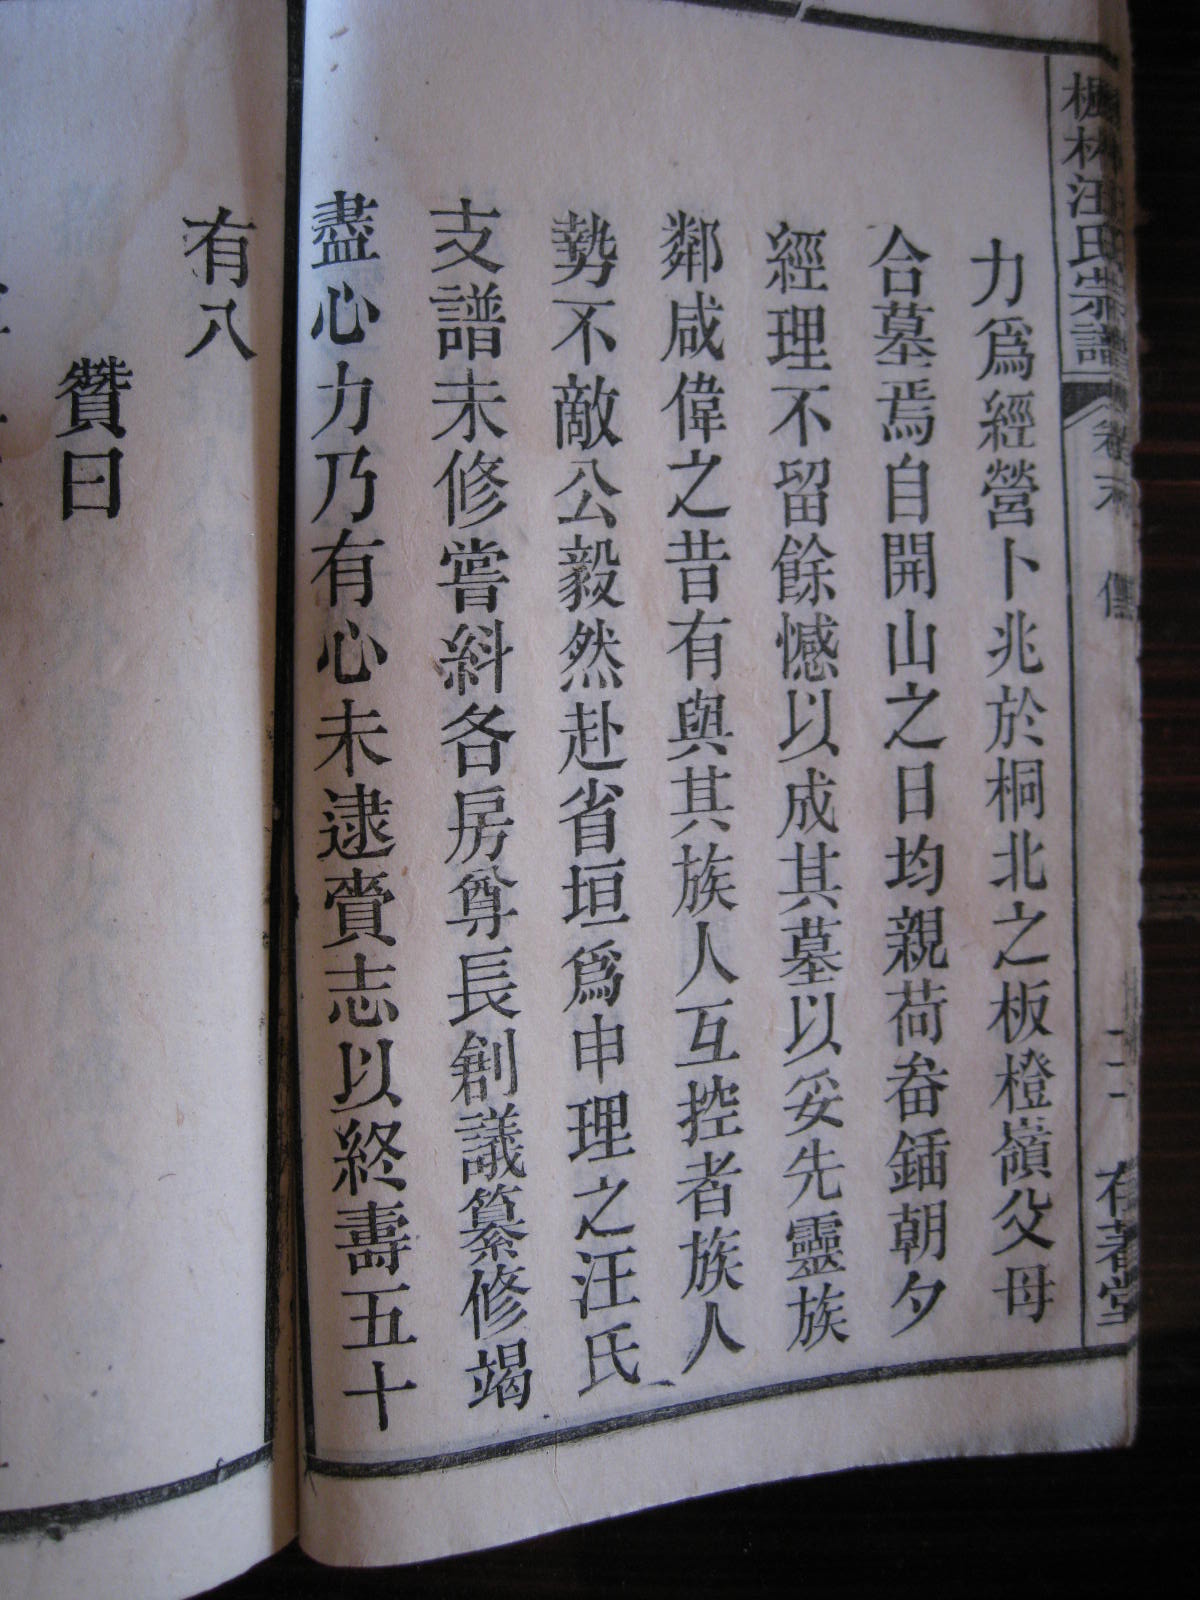 楓林汪氏宗譜 卷末 傳 二十 存著堂
力爲經營卜兆於桐北之板橙嶺父母
合墓焉自開山之日均親荷畚鍤朝夕
經理不留餘憾以成其墓以妥先靈族
鄰咸偉之昔有與其族人互控者族人
勢不敵公毅然赴省垣爲申理之汪氏
支譜未修嘗糾各房尊長創議纂修竭
盡心力乃有心未逮賫志以終壽五十
有八
贊曰